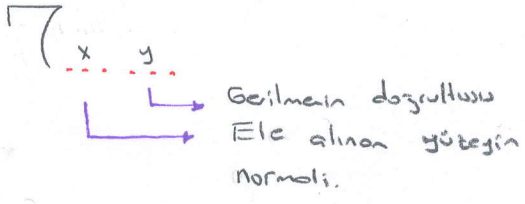 τ x y
Gerilmenin doğrultusu
Ele alınan yüzeyin
normali.